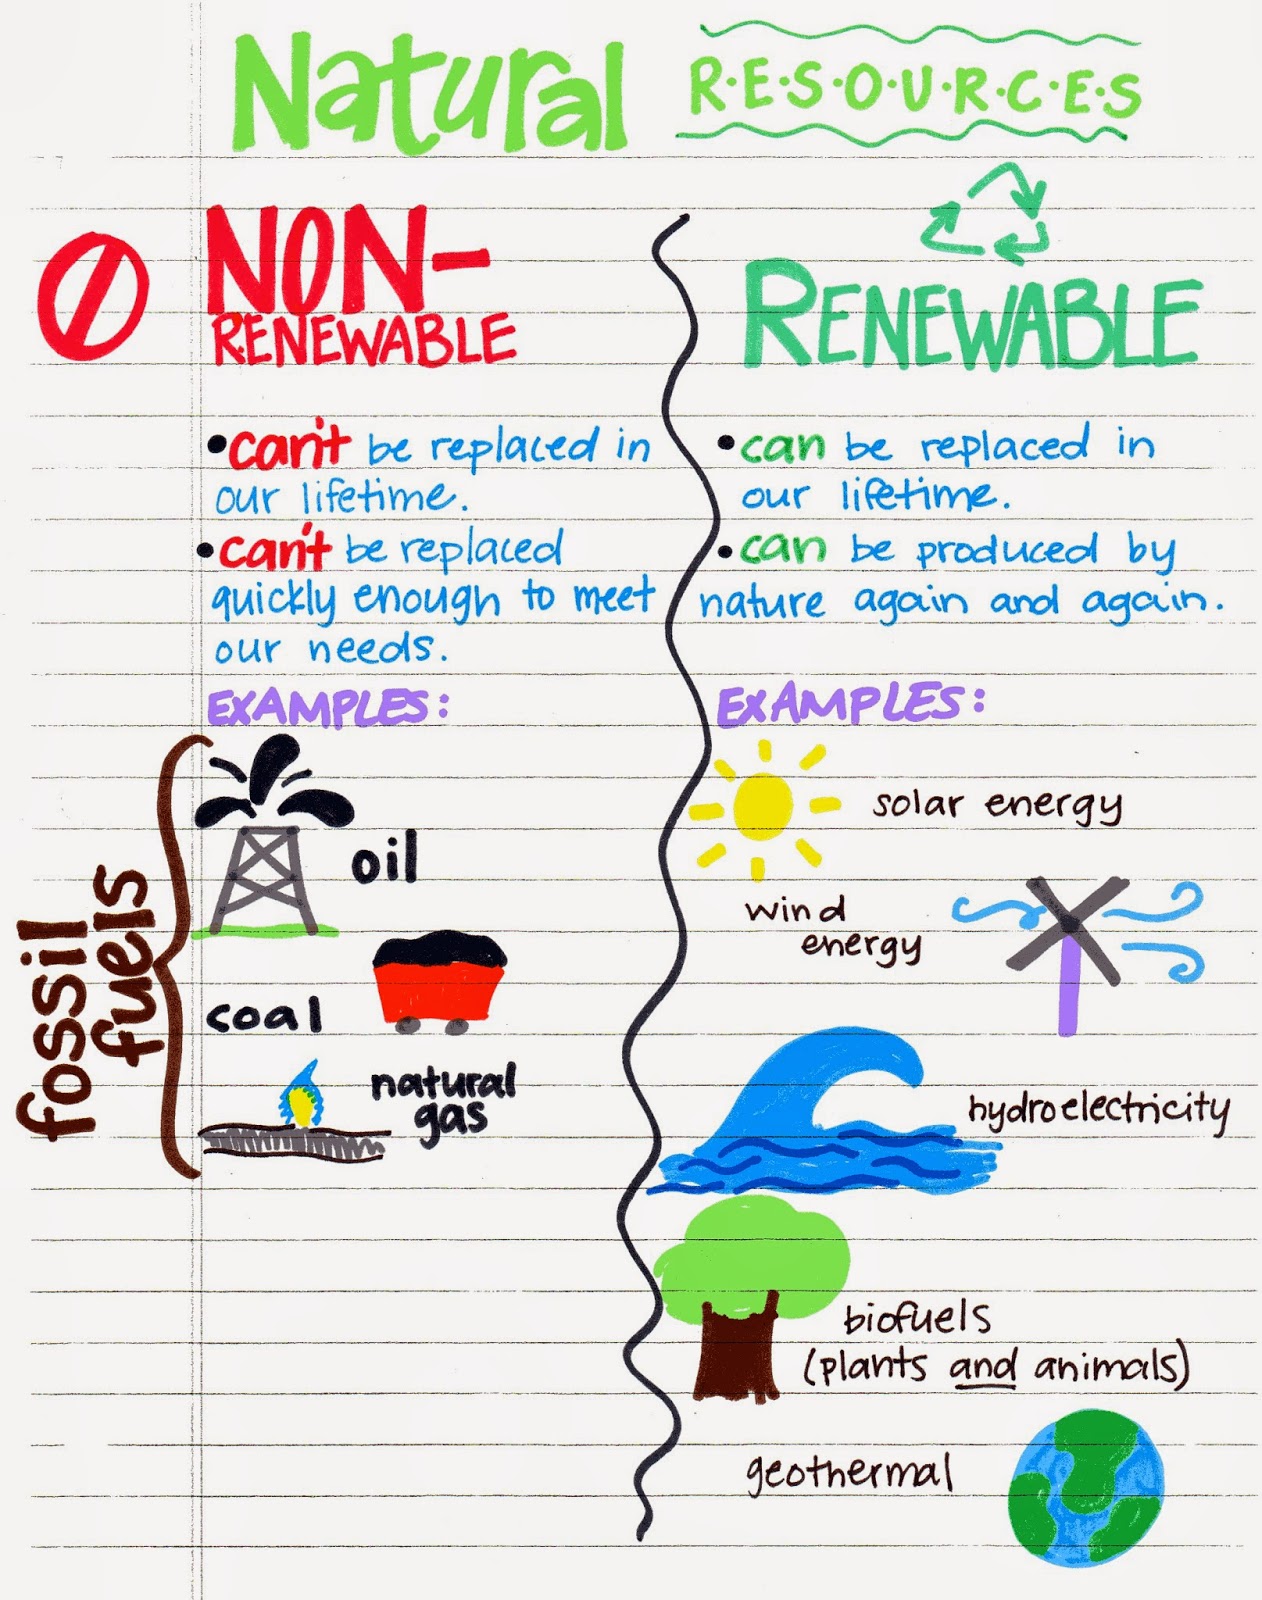 Natural R·E·S·O·U·R·C·E·S
NON-
RENEWABLE
•can't be replaced in
our lifetime.
•can't be replaced
quickly enough to meet
our needs.
EXAMPLES:
fossil
fuels
oil
coal
natural
gas
RENEWABLE
•can be replaced in
our lifetime.
•can be produced by
nature again and again.
EXAMPLES:
solar energy
wind
energy
hydroelectricity
biofuels
(plants and animals)
geothermal